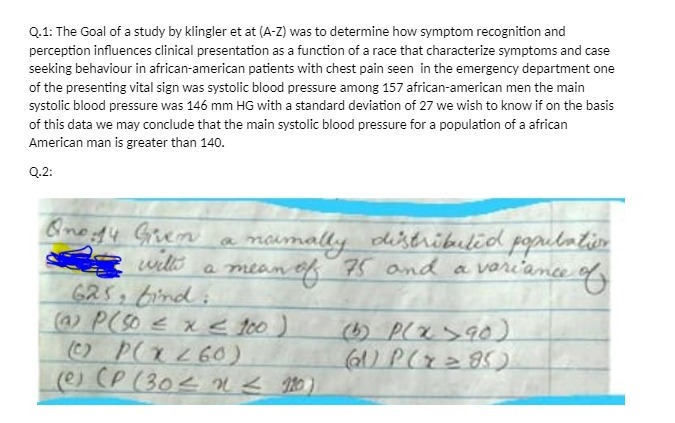 Q.1: The Goal of a study by klingler et at (A-Z) was to determine how symptom recognition and
perception influences clinical presentation as a function of a race that characterize symptoms and case
seeking behaviour in african-american patients with chest pain seen in the emergency department one
of the presenting vital sign was systolic blood pressure among 157 african-american men the main
systolic blood pressure was 146 mm HG with a standard deviation of 27 we wish to know if on the basis
of this data we may conclude that the main systolic blood pressure for a population of a african
American man is greater than 140.
Q.2:
Qno 14 Given a normally distributed population
with a mean of 75 and a variance of
625, find:
(a) P(50 ≤ x ≤ 100) (b) P(x > 90)
(c) P(x < 60) (d) P(x ≥ 85)
(e) (P(30 ≤ x ≤ 110)